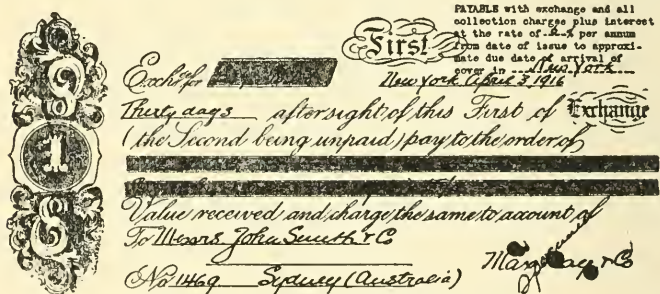 PAYABLE with exchange and all
collection charges plus interest
at the rate of 6 % per annum
from date of issue to approxi-
mate due date of arrival of
cover in New York
First
Exch. for
New York April 3, 1916
Thirty days after sight of this First of Exchange
(the Second being unpaid) pay to the order of
Value received and charge the same to account of
To Messrs. John Smith & Co
No 1469 Sydney (Australia)
1